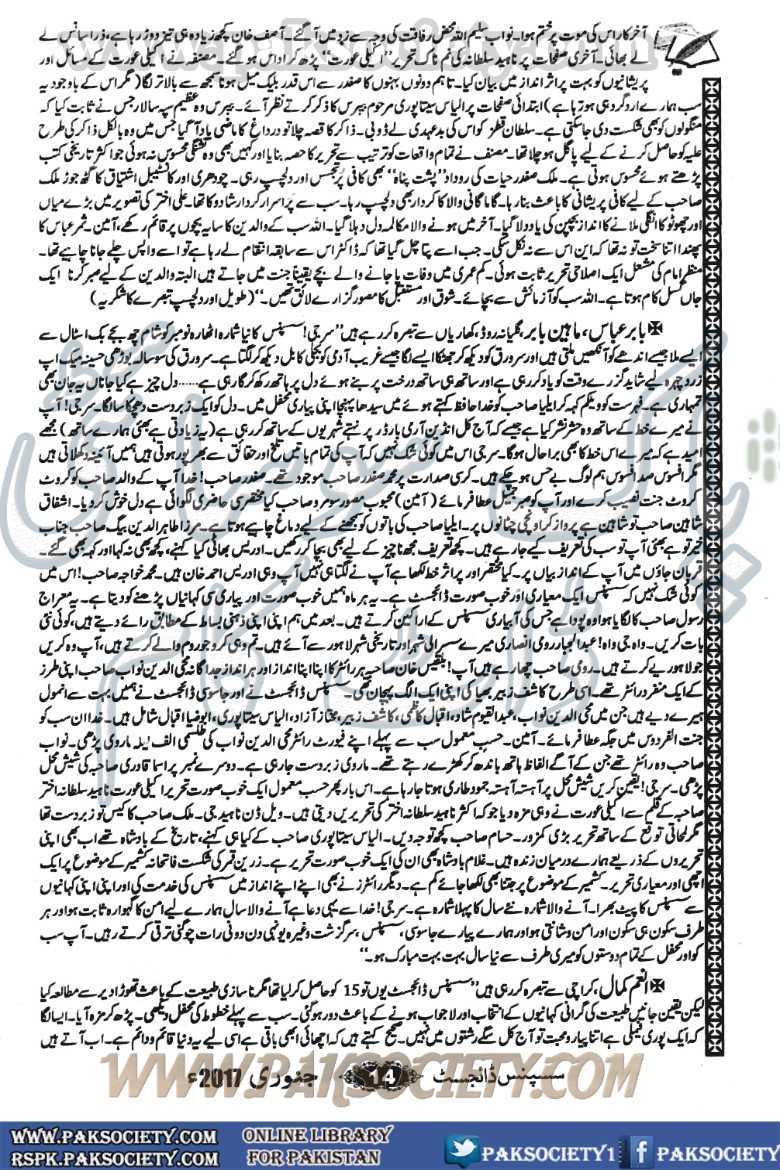 آخر کار اس کی موت پر ختم ہوا۔ نواب سلیم اللہ محض رفاقت کی وجہ سے زد میں آ گئے۔ آصف خان کچھ زیادہ ہی تیز دوڑ رہا ہے، ذرا سانس لے
لے بھائی۔ آخری صفحات پر ناہید سلطانہ کی نم ناک تحریر ”اکیلی عورت“ پڑھ کر اداس ہو گئے۔ مصنفہ نے اکیلی عورت کے مسائل اور
پریشانیوں کو بہت پر اثر انداز میں بیان کیا۔ تاہم دونوں بہنوں کا صفدر سے اس قدر بلیک میل ہونا سمجھ سے بالاتر لگا (مگر اس کے باوجود یہ
سب ہمارے ارد گرد ہی ہوتا ہے) ابتدائی صفحات پر الیاس سیتاپوری مرحوم بیبرس کا ذکر کرتے نظر آئے۔ بیبرس وہ عظیم سپہ سالار جس نے ثابت کیا کہ
منگولوں کو بھی شکست دی جا سکتی ہے۔ سلطان قطز کو اس کی بدعہدی لے ڈوبی۔ ذاکر کا قصہ چلا تو در داغ کا ماضی یاد آ گیا جس میں وہ بالکل ذاکر کی طرح
علیہ کو حاصل کرنے کے لیے پاگل ہو چلا تھا۔ مصنف نے تمام واقعات کو ترتیب سے تحریر کا حصہ بنایا اور کہیں بھی وہ تشنگی محسوس نہ ہوئی جو اکثر تاریخی کتب
پڑھتے ہوئے محسوس ہوتی ہے۔ ملک صفدر حیات کی روداد ”پشت پناہ“ بھی کافی پر تجسس اور دلچسپ رہی۔ چودھری اور کانسٹیبل اشتیاق کا گٹھ جوڑ ملک
صاحب کے لیے کافی پریشانی کا باعث بنا رہا۔ گاما گانی والا کا کردار بھی دلچسپ رہا۔ سب سے پر اسرار کردار شادو کا تھا۔ علی اختر کی تصویر میں بڑے میاں
اور چھوٹو کا انگلی ملانے کا انداز بچپن کی یاد دلا گیا۔ آخر میں ہونے والا مکالمہ دل دہلا گیا۔ اللہ سب کے والدین کا سایہ بچوں پر قائم رکھے، آمین۔ ثمر عباس کا
پھندا اتنا سخت تو نہ تھا کہ این اس سے نہ نکل سکی۔ جب اسے پتا چل گیا تھا کہ ڈاکٹر اس سے سابقہ انتقام لے رہا ہے تو اسے واپس چلے جانا چاہیے تھا۔
منظر امام کی مشعل ایک اصلاحی تحریر ثابت ہوئی۔ کم عمری میں وفات پا جانے والے بچے یقیناً جنت میں جاتے ہیں البتہ والدین کے لیے صبر کرنا ایک
جاں گسل کام ہوتا ہے۔ اللہ سب کو آزمائش سے بچائے۔ خوق اور مستقبل کا مصور گزارے لائق تھیں۔“ (طویل اور دلچسپ تبصرے کا شکریہ)
بابر عباس، ماہین بابر، نگیانہ روڈ، کھاریاں سے تبصرہ کر رہے ہیں ”سر جی! سسپنس کا نیا شمارہ اٹھارہ نومبر کو شام چھ بجے بک اسٹال سے
ایسے ملا جیسے اندھے کو آنکھیں ملتی ہیں اور سرورق کو دیکھ کر جھٹکا ایسے لگا جیسے غریب آدمی کو بجلی کا بل دیکھ کر لگتا ہے۔ سرورق کی سو سالہ بوڑھی حسینہ میک اپ
زدہ چہرہ لیے شاید گزرے وقت کو یاد کر رہی ہے اور ساتھ ہی ساتھ درخت پر بنے ہوئے دل پر ہاتھ رکھ کر گا رہی ہے..... دل چیز ہے کیا جاناں یہ جان بھی
تمہاری ہے۔ فہرست کو ویلکم کہہ کر ایلیا صاحب کو خدا حافظ کہتے ہوئے میں سیدھا پہنچا اپنی پیاری محفل میں۔ دل کو ایک زبردست دھچکا سا لگا۔ سر جی! آپ
نے میرے خط کے ساتھ وہ حشر نشر کیا ہے جیسے کہ آج کل انڈین آرمی بارڈر پر نہتے شہریوں کے ساتھ کر رہی ہے (یہ زیادتی ہے بھئی ہمارے ساتھ) مجھے
امید ہے کہ میرے اس خط کا بھی برا حال ہو گا۔ سر جی اس میں کوئی شک نہیں کہ آپ کی تمام باتیں تلخ اور حقائق سے بھرپور ہوتی ہیں ہمیں آئینہ دکھاتی ہیں
مگر افسوس صد افسوس ہم لوگ بے حس ہو چکے ہیں۔ کرسی صدارت پر محمد صفدر صاحب موجود تھے۔ صفدر صاحب! خدا آپ کے والد صاحب کو کروٹ
کروٹ جنت نصیب کرے اور آپ کو صبر جمیل عطا فرمائے (آمین) محبوب منصور سومرو صاحب کیا مختصر سی حاضری لگوائی ہے دل خوش کر دیا۔ اشفاق
شاہین صاحب تو شاہین ہے پرواز کر اونچی چٹانوں پر۔ ایلیا صاحب کی باتوں کو سمجھنے کے لیے دماغ چاہیے ہوتا ہے۔ مرزا طاہر الدین بیگ صاحب جناب
خیر تو ہے بھئی آپ تو سب کی تعریف کیے جا رہے ہیں۔ کچھ تعریف مجھ ناچیز کے لیے بھی بچا کر رکھیں۔ ادریس بھائی کیا کہنے، کچھ بھی نہ کہا اور کہہ بھی گئے۔
قربان جاؤں میں آپ کے انداز بیاں پر۔ کیا مختصر اور پر اثر خط لکھا ہے آپ نے لگتا ہی نہیں آپ وہی ادریس احمد خان ہیں۔ محمد خواجہ صاحب! اس میں
کوئی شک نہیں کہ سسپنس ایک معیاری اور خوب صورت ڈائجسٹ ہے۔ یہ ہر ماہ ہمیں خوب صورت اور پیاری سی کہانیاں پڑھنے کو دیتا ہے۔ یہ معراج
رسول صاحب کا لگایا ہوا وہ پودا ہے جس کی آبیاری سسپنس کے ارا کین کرتے ہیں۔ بعد میں ہم اپنی اپنی ذہنی بساط کے مطابق رائے دیتے ہیں، کوئی نئی
بات کریں۔ واہ جی واہ! عبدالجبار رومی انصاری میرے سسرالی شہر اور تاریخی شہر لاہور سے آئے ہیں۔ تم وہی کرو جو روم والے کرتے ہیں، آپ وہ کریں
جو لاہوریے کرتے ہیں۔ رومی صاحب چھا رہے ہیں آپ! بلقیس خان صاحبہ ہر رائٹر کا اپنا اپنا انداز اور ہر انداز جداگانہ محی الدین نواب صاحب اپنی طرز
کے ایک منفرد رائٹر تھے۔ اسی طرح کاشف زبیر بھیا کی اپنی ایک الگ پہچان تھی۔ سسپنس ڈائجسٹ نے اور جاسوسی ڈائجسٹ نے ہمیں بہت سے انمول
ہیرے دیے ہیں جن میں محی الدین نواب، عبدالقیوم شاد، اقبال کاظمی، کاشف زبیر، مختار آزاد، الیاس سیتاپوری، ابو ضیا اقبال شامل ہیں۔ خدا ان سب کو
جنت الفردوس میں جگہ عطا فرمائے۔ آمین۔ حسب معمول سب سے پہلے اپنے فیورٹ رائٹر محی الدین نواب کی طلسمی الف لیلہ ماروی پڑھی۔ نواب
صاحب وہ رائٹر تھے جن کے آگے الفاظ ہاتھ باندھ کر کھڑے رہتے تھے۔ ماروی زبردست جا رہی ہے۔ دوسرے نمبر پر اسما قادری صاحبہ کی شیش محل
پڑھی۔ سر جی! یقین کریں شیش محل پر آہستہ آہستہ جمود طاری ہوتا جا رہا ہے۔ اس بار پھر حسب معمول ایک خوب صورت تحریر اکیلی عورت ناہید سلطانہ اختر
صاحبہ کے قلم سے اکیلی عورت نے وہی مزہ دیا جو کہ اکثر ناہید سلطانہ اختر کی تحریریں دیتی ہیں۔ ویل ڈن ناہید جی۔ ملک صاحب کا کیس تو زبردست تھا
مگر لمحاتی توقع کے ساتھ تحریر بڑی کمزور۔ حسام صاحب کچھ توجہ دیں۔ الیاس سیتاپوری صاحب کے کیا ہی کہنے، تاریخ کے بادشاہ تھے اب بھی اپنی
تحریروں کے ذریعے ہمارے درمیان زندہ ہیں۔ غلام بادشاہ بھی ان کی ایک خوب صورت تحریر ہے۔ زرین قمر کی شکست فاتحانہ کشمیر کے موضوع پر ایک
اچھی اور معیاری تحریر۔ کشمیر کے موضوع پر جتنا بھی لکھا جائے کم ہے۔ دیگر رائٹرز نے بھی اپنے اپنے انداز میں سسپنس کی خدمت کی اور اپنی اپنی کہانیوں
سے سسپنس کا پیٹ بھرا۔ آنے والا شمارہ نئے سال کا پہلا شمارہ ہے۔ سر جی! خدا سے یہی دعا ہے آنے والا سال ہمارے لیے امن کا گہوارہ ثابت ہو اور ہر
طرف سکون ہی سکون اور امن و شانتی ہو اور ہمارے پیارے جاسوسی، سسپنس، سرگزشت وغیرہ یونہی دن دونی رات چوگنی ترقی کرتے ہیں۔ آپ سب
کو اور محفل کے تمام دوستوں کو میری طرف سے نیا سال بہت بہت مبارک ہو۔“
انعم کمال، کراچی سے تبصرہ کر رہی ہیں ”سسپنس ڈائجسٹ یوں تو 15 کو حاصل کر لیا تھا مگر ناسازی طبیعت کے باعث تھوڑا دیر سے مطالعہ کیا
لیکن یقین جانیں طبیعت کی گرانی کہانیوں کے انتخاب اور لاجواب ہونے کے باعث دور ہو گئی۔ سب سے پہلے خطوط کی محفل دیکھی۔ پڑھ کر مزہ آیا۔ ایسا لگا
کہ ایک پوری فیملی ہے اتنا پیار و محبت تو آج کل سگے رشتوں میں نہیں۔ صحیح کہتے ہیں کہ اچھائی ابھی باقی ہے اسی لیے یہ دنیا قائم و دائم ہے۔ اب آتے ہیں
سسپنس ڈائجسٹ 14 جنوری 2017ء
WWW.PAKSOCIETY.COM
WWW.PAKSOCIETY.COM
RSPK.PAKSOCIETY.COM
ONLINE LIBRARY
FOR PAKISTAN
PAKSOCIETY1
PAKSOCIETY